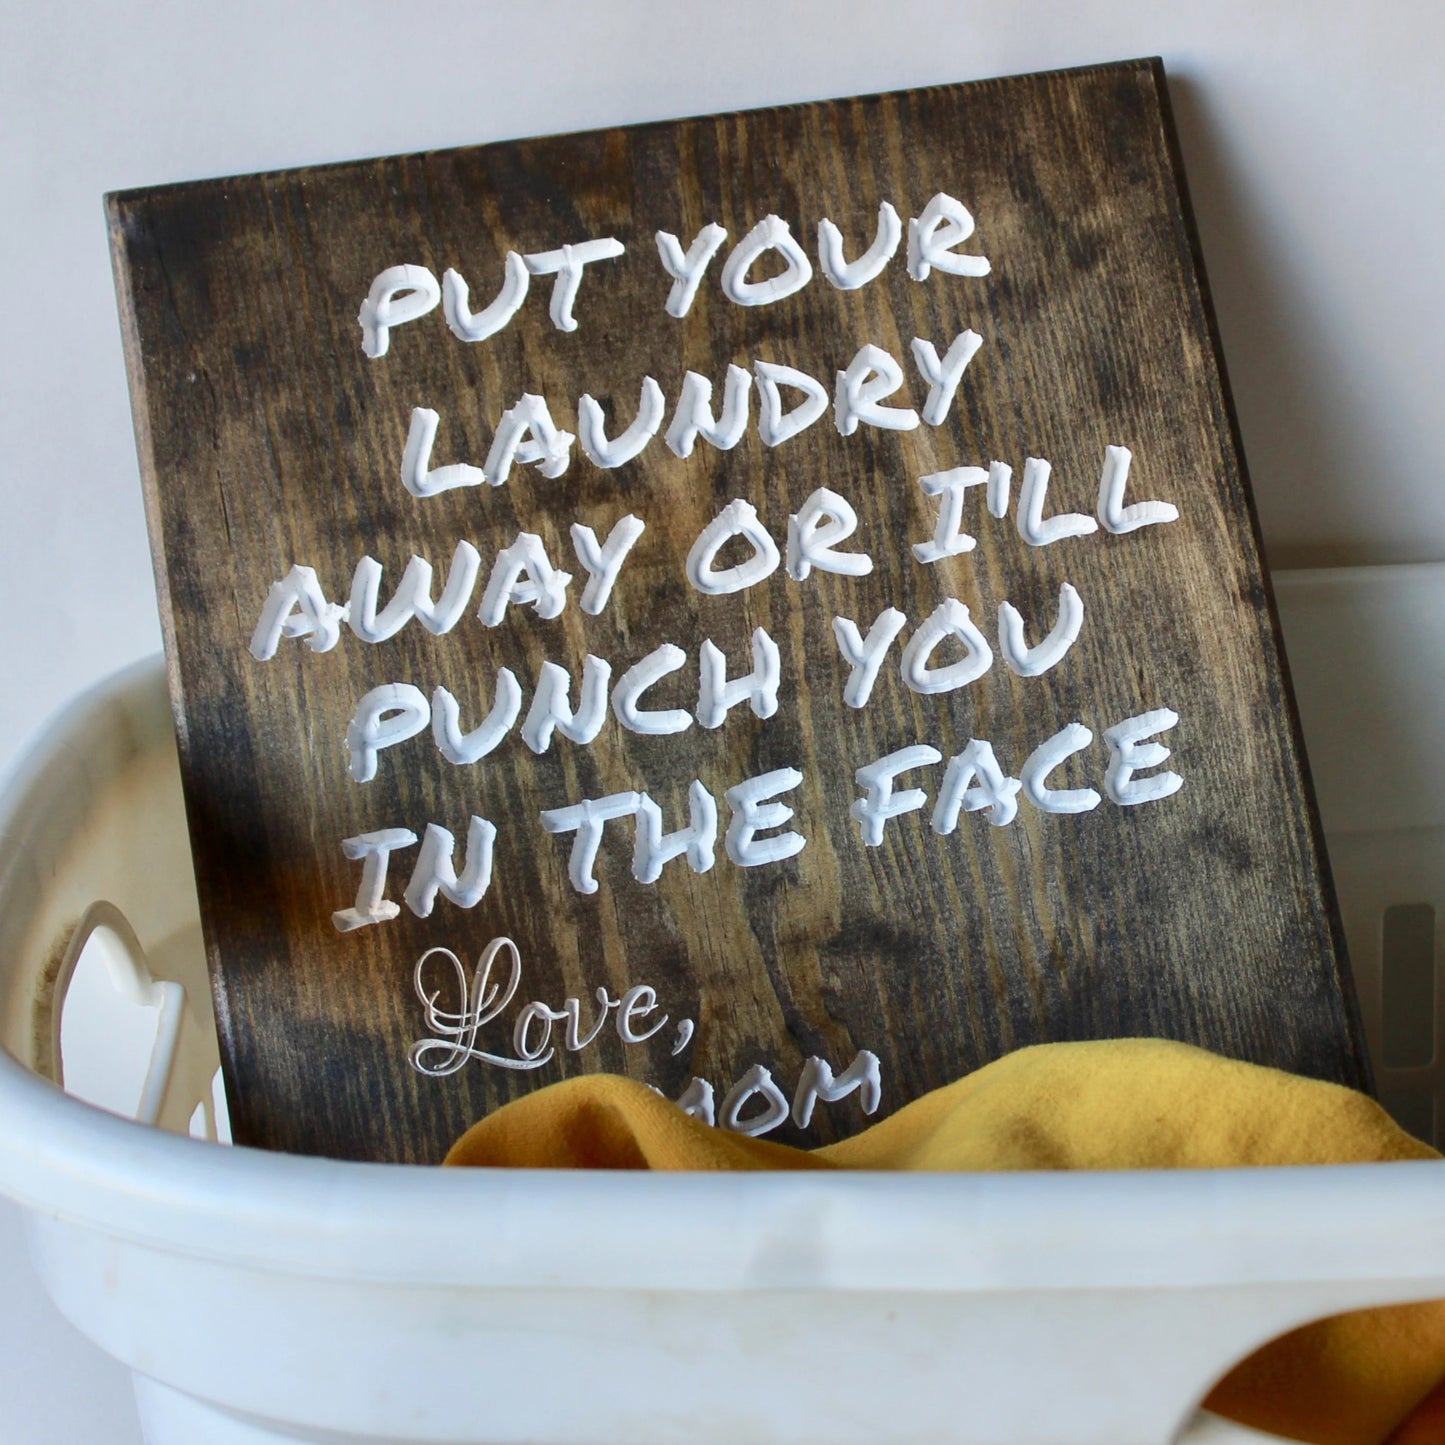 PUT YOUR
LAUNDRY
AWAY OR I'LL
PUNCH YOU
IN THE FACE
Love,
MOM